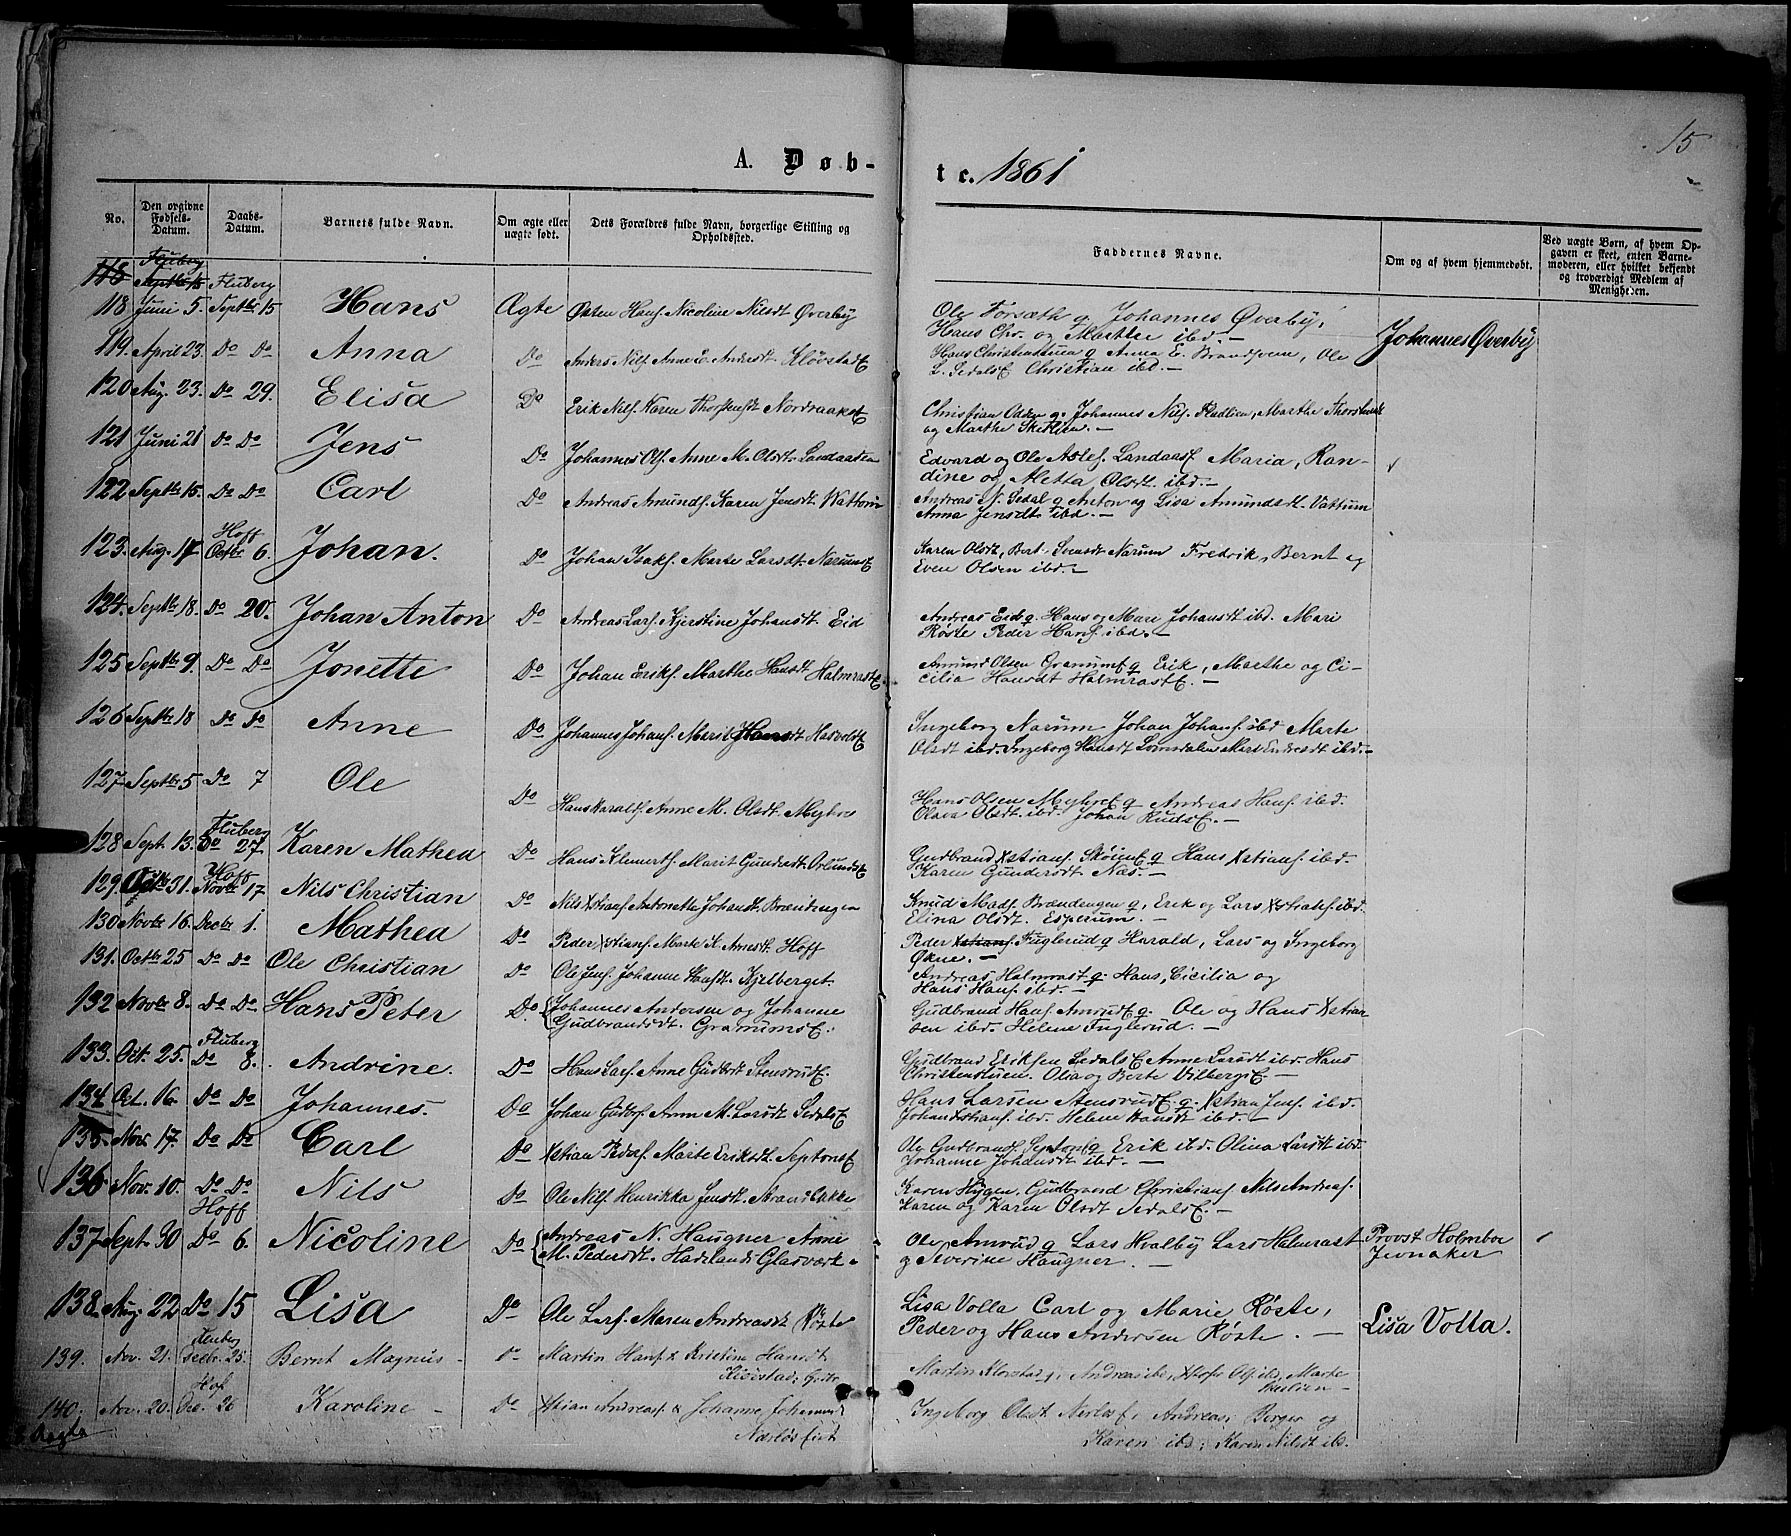 15
A. Døb-
te. 1861
No.
Den opgivne Fødsels-Datum.
Daabs-Datum.
Barnets fulde Navn.
Om ægte eller uægte født.
Dets Forældres fulde Navn, borgerlige Stilling og Opholdssted.
Faddernes Navne.
Om og af hvem hjemmedøbt.
Ved uægte Børn, af hvem Opgaven er skeet, enten Barnemoderen, eller hvilket bekjendt og troværdigt Medlem af Menigheden.
Fluberg
118 Septbr 15 Fluberg
118 Juni 5. Septbr 15 Hans Ægte Østen Hans. Nicoline Nilsdt Øverby
Ole Forsæth g. Johannes Øverby,
Hans Chr. og Marthe ibd. —
Johannes Øverby
119. April 23. Do Do Anna Do Anders Nils. Anne E. Andersdt
Hans Christenstuen g Anna E. Brandhven, Ole
L. SedalsE Christian ibd. —
120 Aug. 23. Do 29. Elisa Do Erik Nils. Karen Thorstensdt NordraaksE
Christian Odden g. Johannes Nils. Fladlien, Marthe
og Marthe Sketlien. —
121 Juni 21 Do Do Jens Do Johannes Ols. Anne M. Olsdt. Landaasen
Edvard og Ole LandaasE Maria, Ran-
dine og Mletta Olsdt ibd. —
122 Septbr 15. Do Do Carl Do Andreas Amunds. Karen Jensdt Wattum
Andreas N. Sedal g Anton og Lisa Amundsdt. Vattum
Anna Jensdt ibd. —
Hoff
123. Aug. 17 Octbr 6. Johan. Do Johan Isaks. Marte Larsdt. NarumsE
Karen Olsdt, Bert. Narum Fredrik, Bernt og
Even Olsen ibd. —
124. Septbr 18. Do 20. Johan Anton Do Andreas Lars. Kjerstine Johansdt. Eid
Andreas Eid g. Hans og Mari Johansdt ibd. Mari
Røste Peder Hans. ibd. —
125 Septbr 9. Do Do Jonette Do Johan Eriks. Marthe Hansdt HalmrastE.
Amund Olsen GranumE g Erik, Marthe og Ci-
cilia Hansdt HalmrastE. —
126 Septbr 18 Do Do Anne Do Johannes Johans. Marit Hansdt HasvoldE
Ingeborg Narum Johan Johans. ibd Marte
Olsdt ibd. Ingeborg Hansdt Lomsdalen Mari Endresdt ibd. —
127 Septbr 5 Do 7 Ole Do Hans Haralds. Anne M. Olsdt.
Hans Olsen g Andreas Hans. ibd.
Olava Olsdt ibd. Johan RudsE. —
Fluberg
128 Sept. 13. Do 27. Karen Mathea Do Hans Klemets. Marit Gundersdt
Gudbrand Xstians. g Hans Xstians. ibd.
Karen Gundersdt Næs. —
Hoff
129. Octbr 31. Novbr 17. Nils Christian Do Nils Xstians. Antonette Johansdt. Brændengen
Knud Mads. Brændengen g, Erik og Lars Xstians. ibd.
Elina Olsdt. Esperum. —
130 Novbr 16. Decbr 1. Mathea Do Peder Xstians. Marte K. Hoff
Peder Xstians. Fuglerud g Harald, Lars og Ingeborg
Økne. —
131. Octbr 25 Do Do Ole Christian Do Ole Jens. Johanne Hansdt. Kjelberget.
Andreas Halmrast g. Hans, Cicilia og
Hans Hans. ibd. —
132 Novbr 8. Do Do Hans Peter Do. Johannes Andersen og Johanne
Gudbrandsdt. GranumsE.
Gudbrand Hans. AmrudE g. Ole og Hans Xstian-
sen ibd. Helene Fuglerud. —
Fluberg
133. Oct. 25. Do 8. Andrine. Do Hans Lars. Anne Gudbdt StensrudE.
Gudbrand Eriksen SedalsE Anne Larsdt ibd. Hans
Christenstuen. Olia og Berte VilbergsE —
134 Oct. 16. Do Do Johannes. Do Johan Gudbs. Anne M. Larsdt SedalsE
Hans Larsen StensrudE g. Xstian Jens. ibd.
Johan Xstians. ibd. Helene Hansdt ibd. —
135. Nov. 17. Do Do Carl Do Xstian Peders. Marte Eriksdt. SeptonsE
Ole Gudbrands. SeptonE g Erik ibd. Olina Larsdt ibd.
Johanne Johansdt ibd. —
136 Nov. 10. Do Do Nils Do Ole Nils. Henrikka Jensdt. Strandbakke
Karen Hygen. Gudbrand Christians. Nils Andreas.
Karen og Karen Olsdt SedalsE. —
Hoff
137 Sept. 30 Do 6. Nicoline Do Andreas N. Haugner Anne
M. Pedersdt. Hadelands Glasværk
Ole Amrud g Lars Hvalby Lars Halmrast
og Averine Haugner. —
Provst Holmboe
Jevnaker
138. Aug. 22 Do 15 Lisa Do Ole Lars. Maren Andreasdt Røste
Lisa Volla Carl og Marie Røste,
Peder og Hans Andersen Røste. —
Lisa Volla.
Fluberg
139. Nov. 21. Decbr. 25. Bernt Magnus - Do Martin Hans. & Kristine Hansdt
Martin g, Andreas ibd, Ols. ibd, Marte
Hof
140. Nov. 20. Dec. 26 Karoline - Do Xstian Andreas. & Johanne
Ingeborg Olsdt Andreas, Berger og
Karen ibd, Karen Nilsdt ibd.